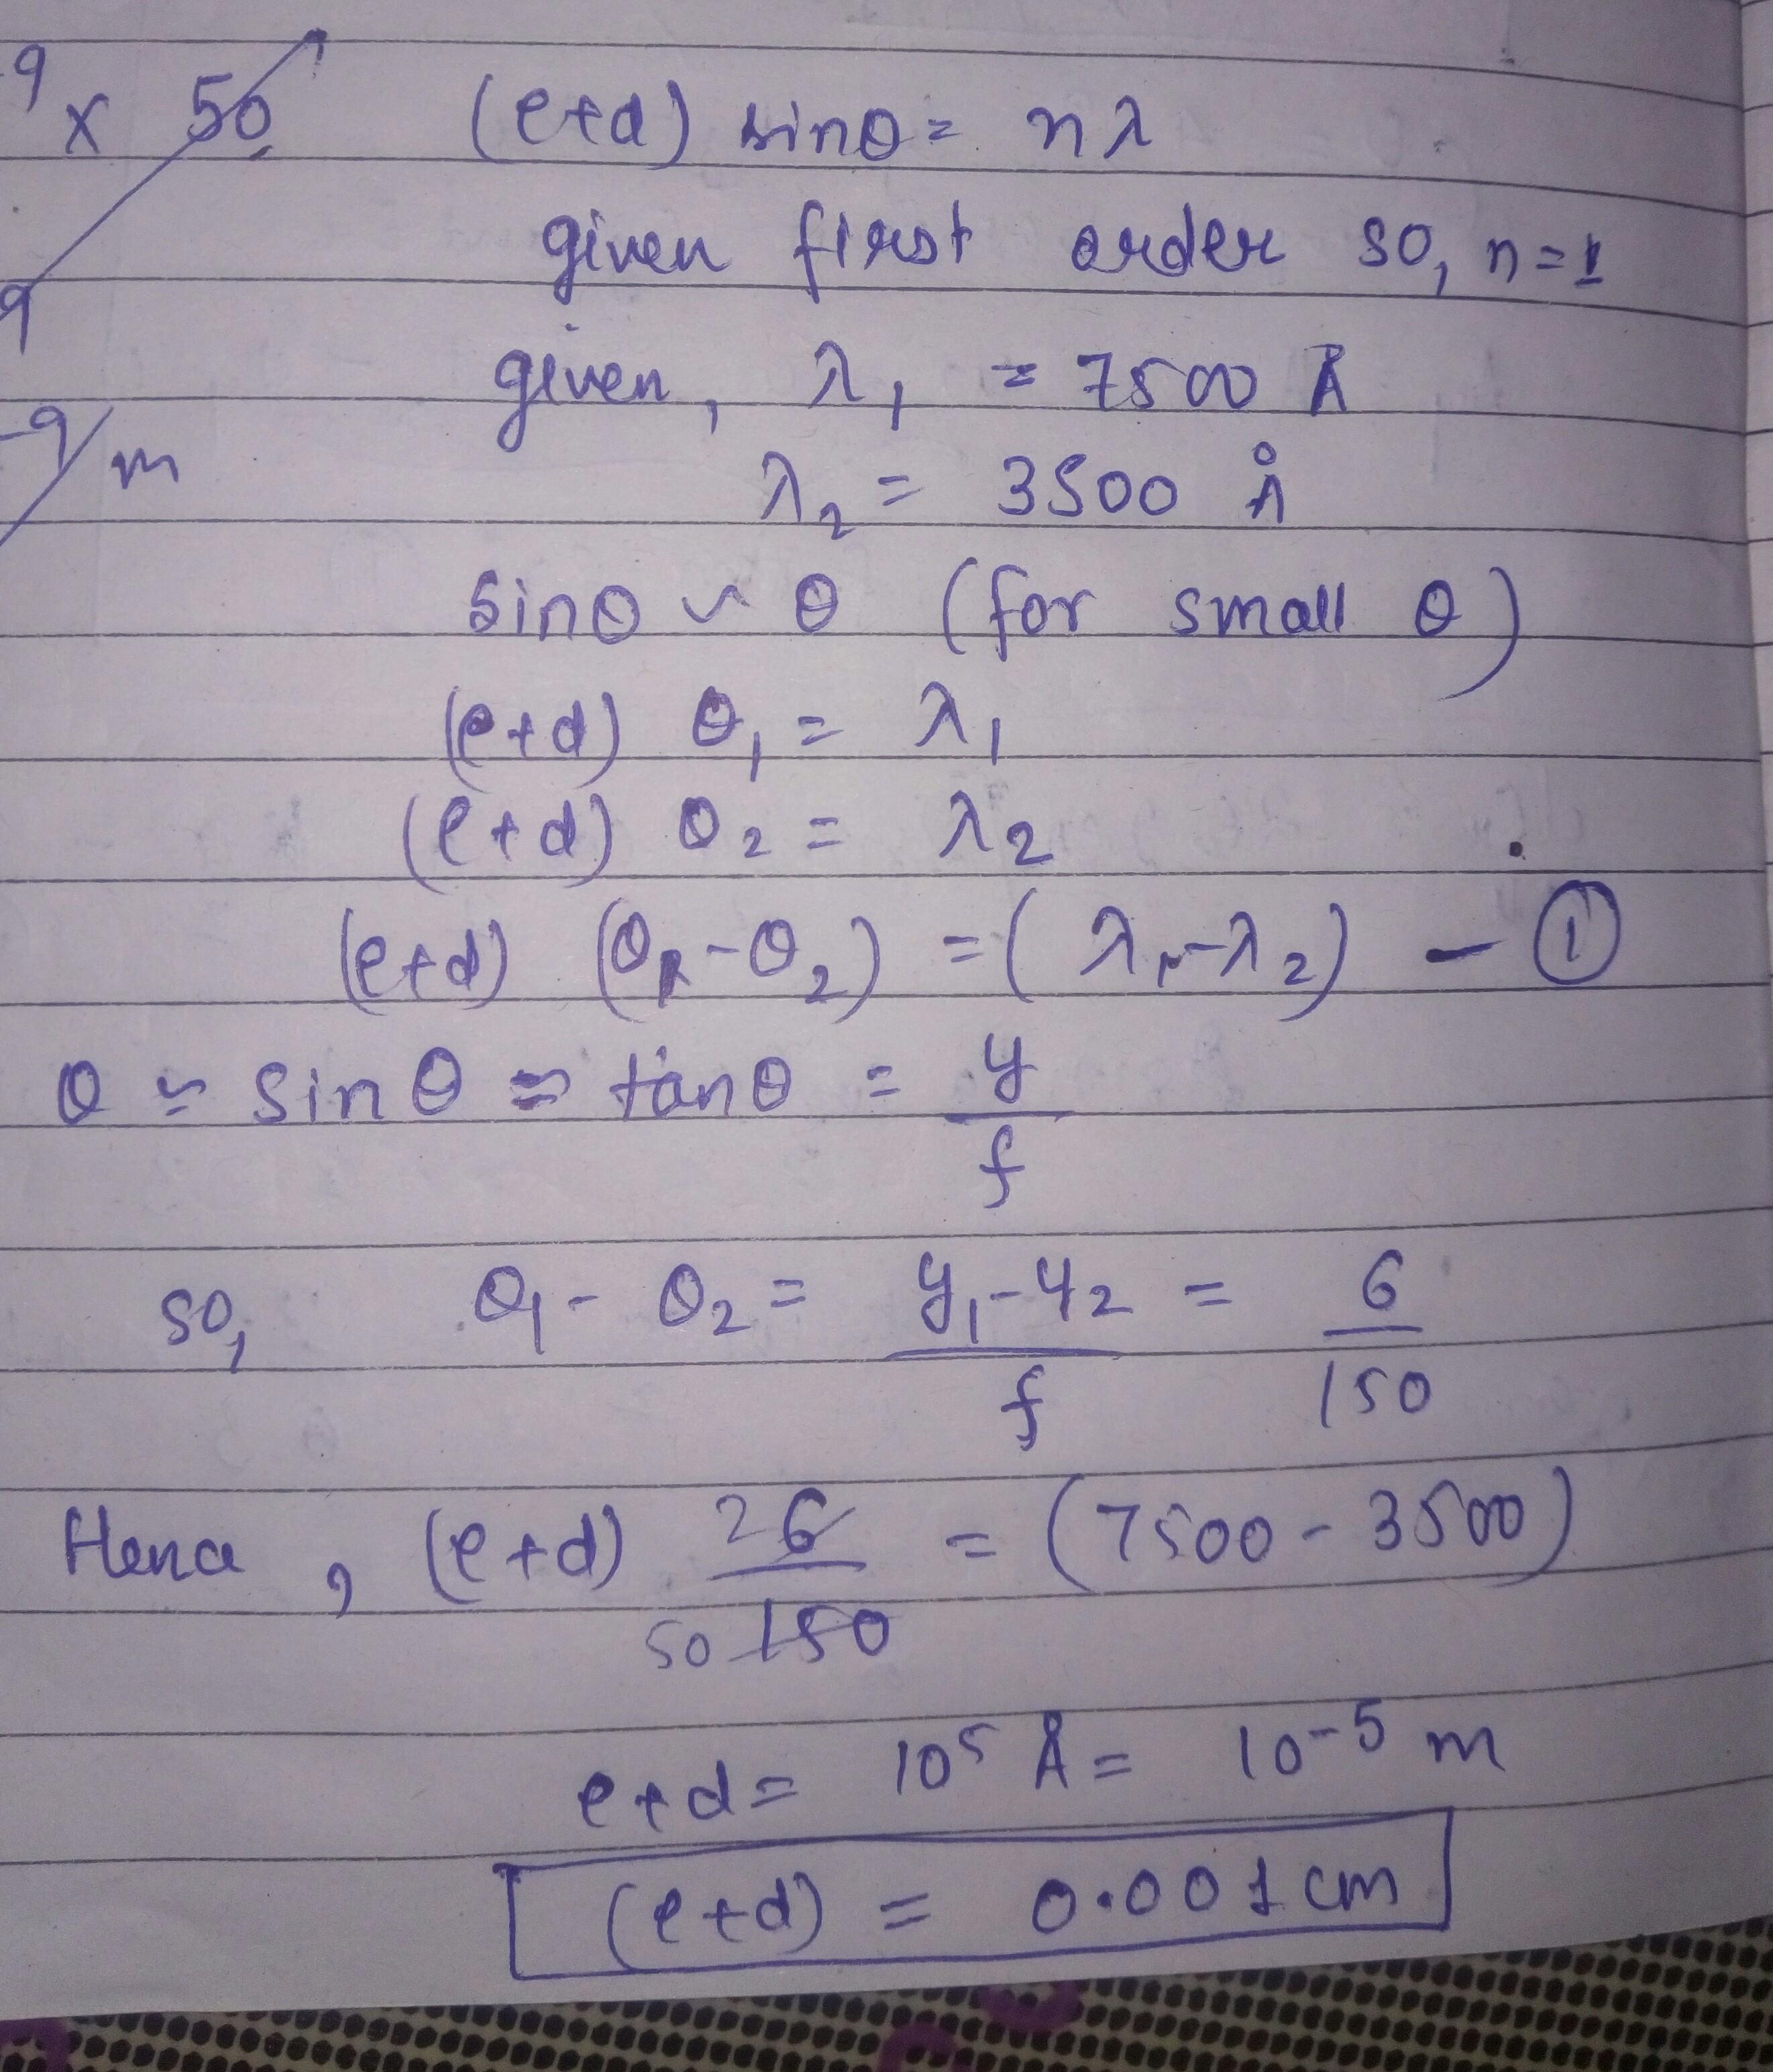 9 x 50 (e+d) sinθ = nλ
given first order so, n=1
9
given, λ₁ = 7500 Å
-9/m
λ₂ = 3500 Å
sinθ ~ θ (for small θ)
(e+d) θ₁ = λ₁
(e+d) θ₂ = λ₂
(e+d) (θ₁-θ₂) = (λ₁-λ₂) - ①
θ ≃ sinθ ≃ tanθ = y/f
so, θ₁ - θ₂ = y₁-y₂/f = 6/150
Hence, (e+d) 2 6/50 150 = (7500 - 3500)
e+d = 10⁵ Å = 10⁻⁵ m
(e+d) = 0.001 cm